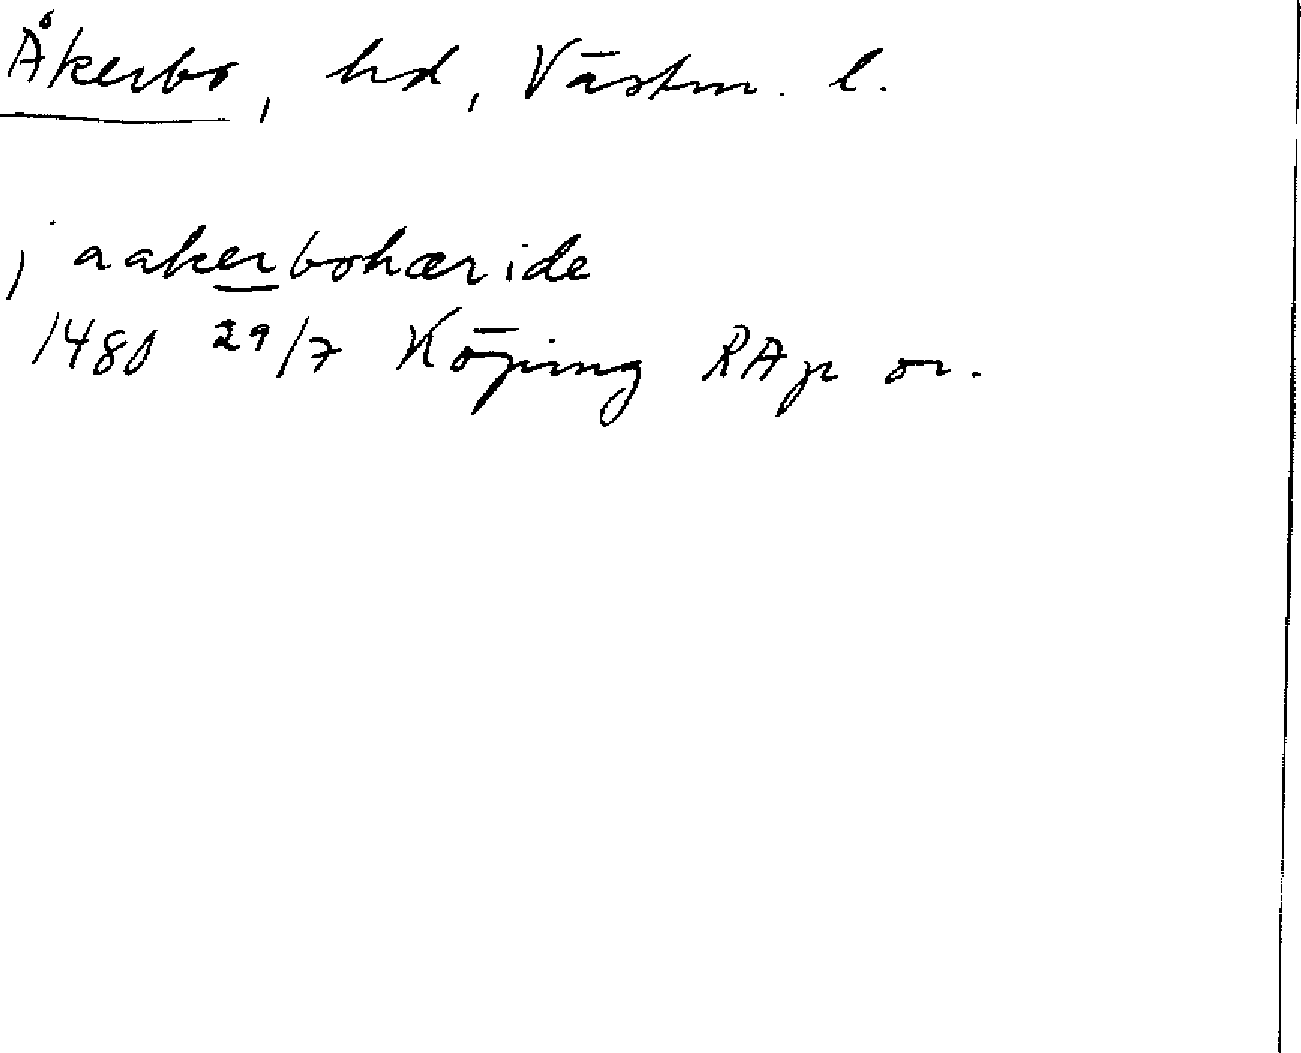 Åkerbo, hd, Västm. l.
j aakerbohæride
1480 29/7 Köping RAp or.